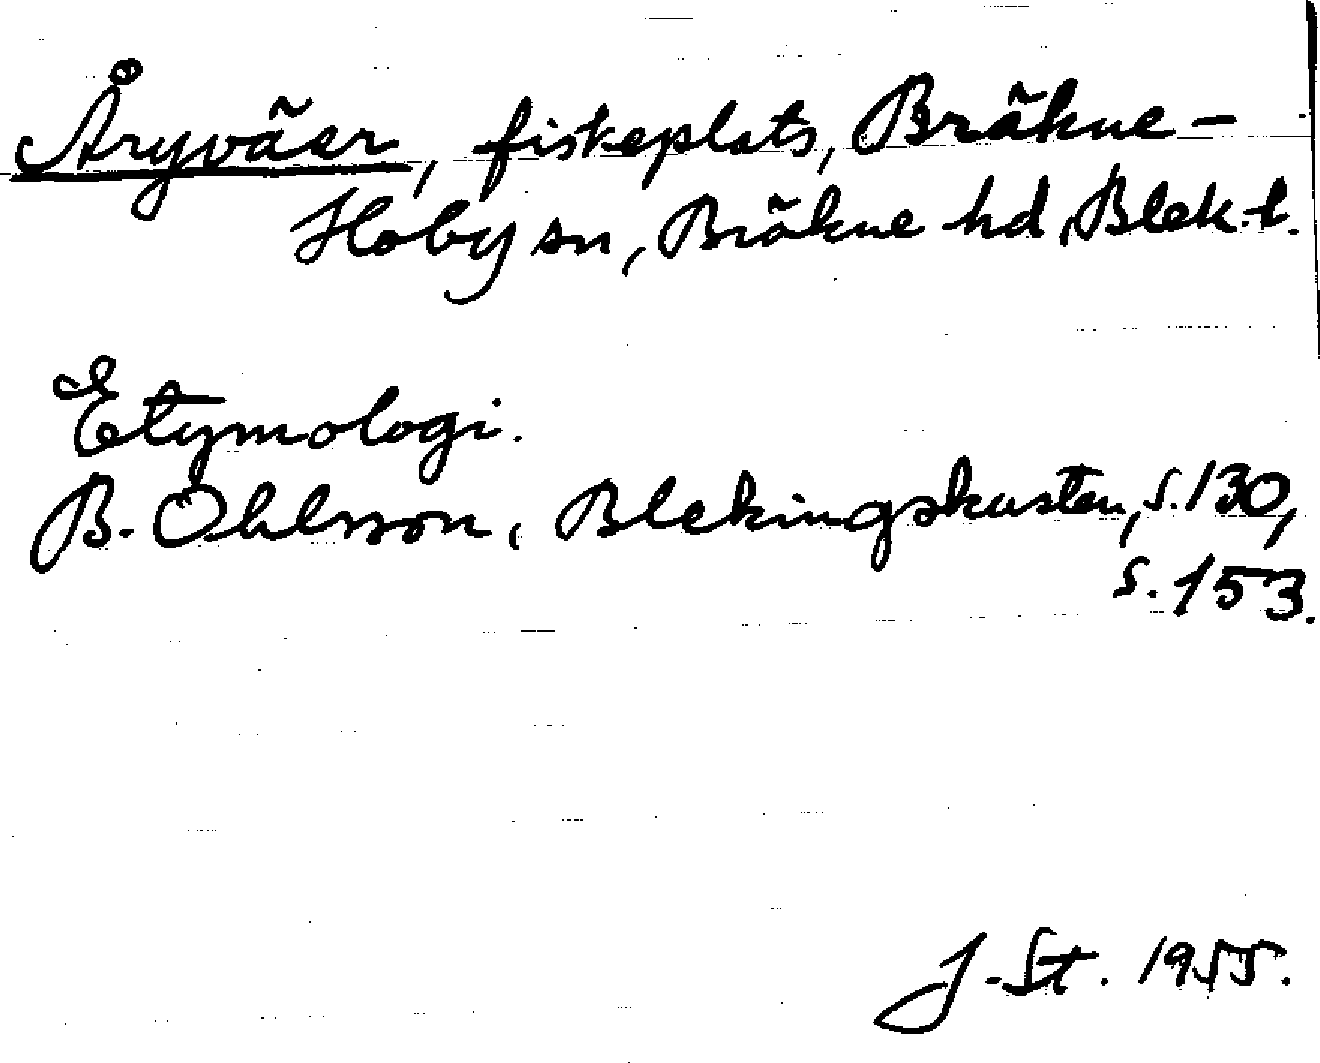 Åryväer, fiskeplats, Bräkne-
Hoby sn, Bräkne hd, Blek. l.
Etymologi.
B. Ohlsson, Blekingskusten, s. 130,
s. 153.
J. St. 1955.